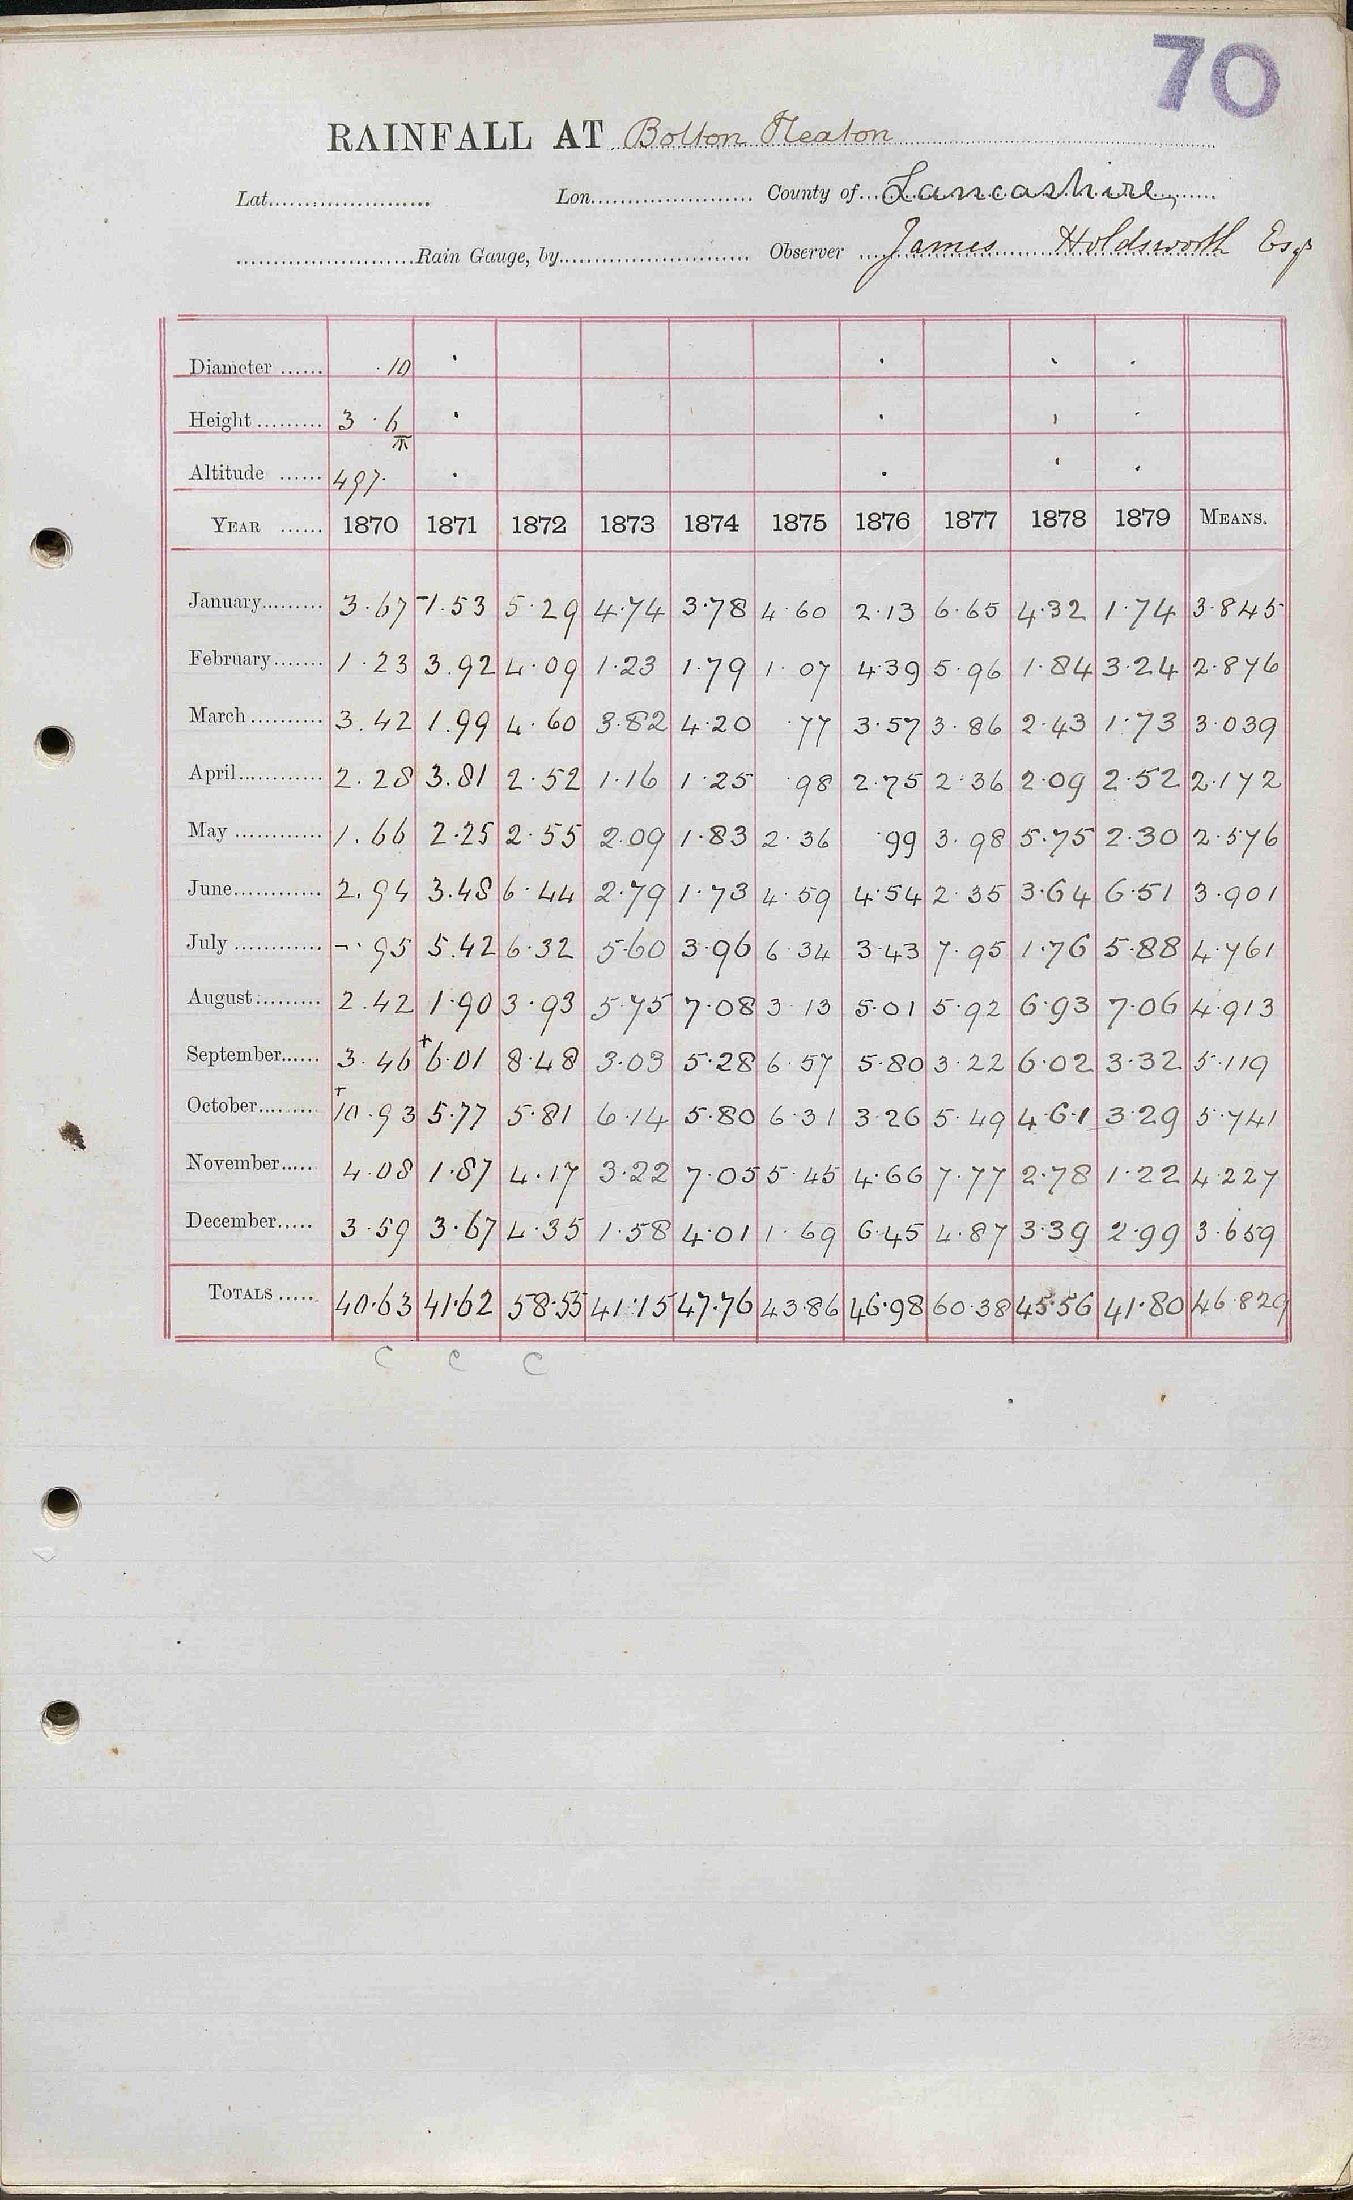 70
RAINFALL AT Bolton Heaton
Lat. Lon. County of Lancashire,
Rain Gauge, by Observer James Holdsworth Esqr
Diameter ...... · 10
Height ......... 3 · 6
Altitude ...... 497·
YEAR ...... 1870 1871 1872 1873 1874 1875 1876 1877 1878 1879 MEANS.
January......... 3·67 -1.53 5·29 4·74 3·78 4·60 2·13 6·65 4·32 1·74 3·845
February....... 1·23 3.92 4·09 1·23 1·79 1·07 4·39 5·96 1·84 3·24 2·876
March .......... 3.42 1.99 4.60 3·82 4·20 ·77 3·57 3·86 2·43 1·73 3·039
April............ 2.28 3.81 2·52 1·16 1·25 ·98 2·75 2·36 2·09 2·52 2·172
May ............ 1.66 2·25 2·55 2·09 1·83 2·36 ·99 3·98 5·75 2·30 2·576
June............ 2.94 3.48 6·44 2·79 1·73 4·59 4·54 2·35 3·64 6·51 3·901
July ............ -·95 5.42 6·32 5·60 3·96 6·34 3·43 7·95 1·76 5·88 4·761
August......... 2.42 1·90 3·93 5·75 7·08 3·13 5·01 5·92 6·93 7·06 4·913
September...... 3.46 +6·01 8·48 3·03 5·28 6·57 5·80 3·22 6·02 3·32 5·119
October......... +10·93 5·77 5·81 6·14 5·80 6·31 3·26 5·49 4·61 3·29 5·741
November..... 4·08 1·87 4·17 3·22 7·05 5·45 4·66 7·77 2·78 1·22 4·227
December..... 3·59 3·67 4·35 1·58 4·01 1·69 6·45 4·87 3·39 2·99 3·659
TOTALS ..... 40·63 41·62 58·55 41·15 47·76 43·86 46·98 60·38 45·56 41·80 46·829
C C C